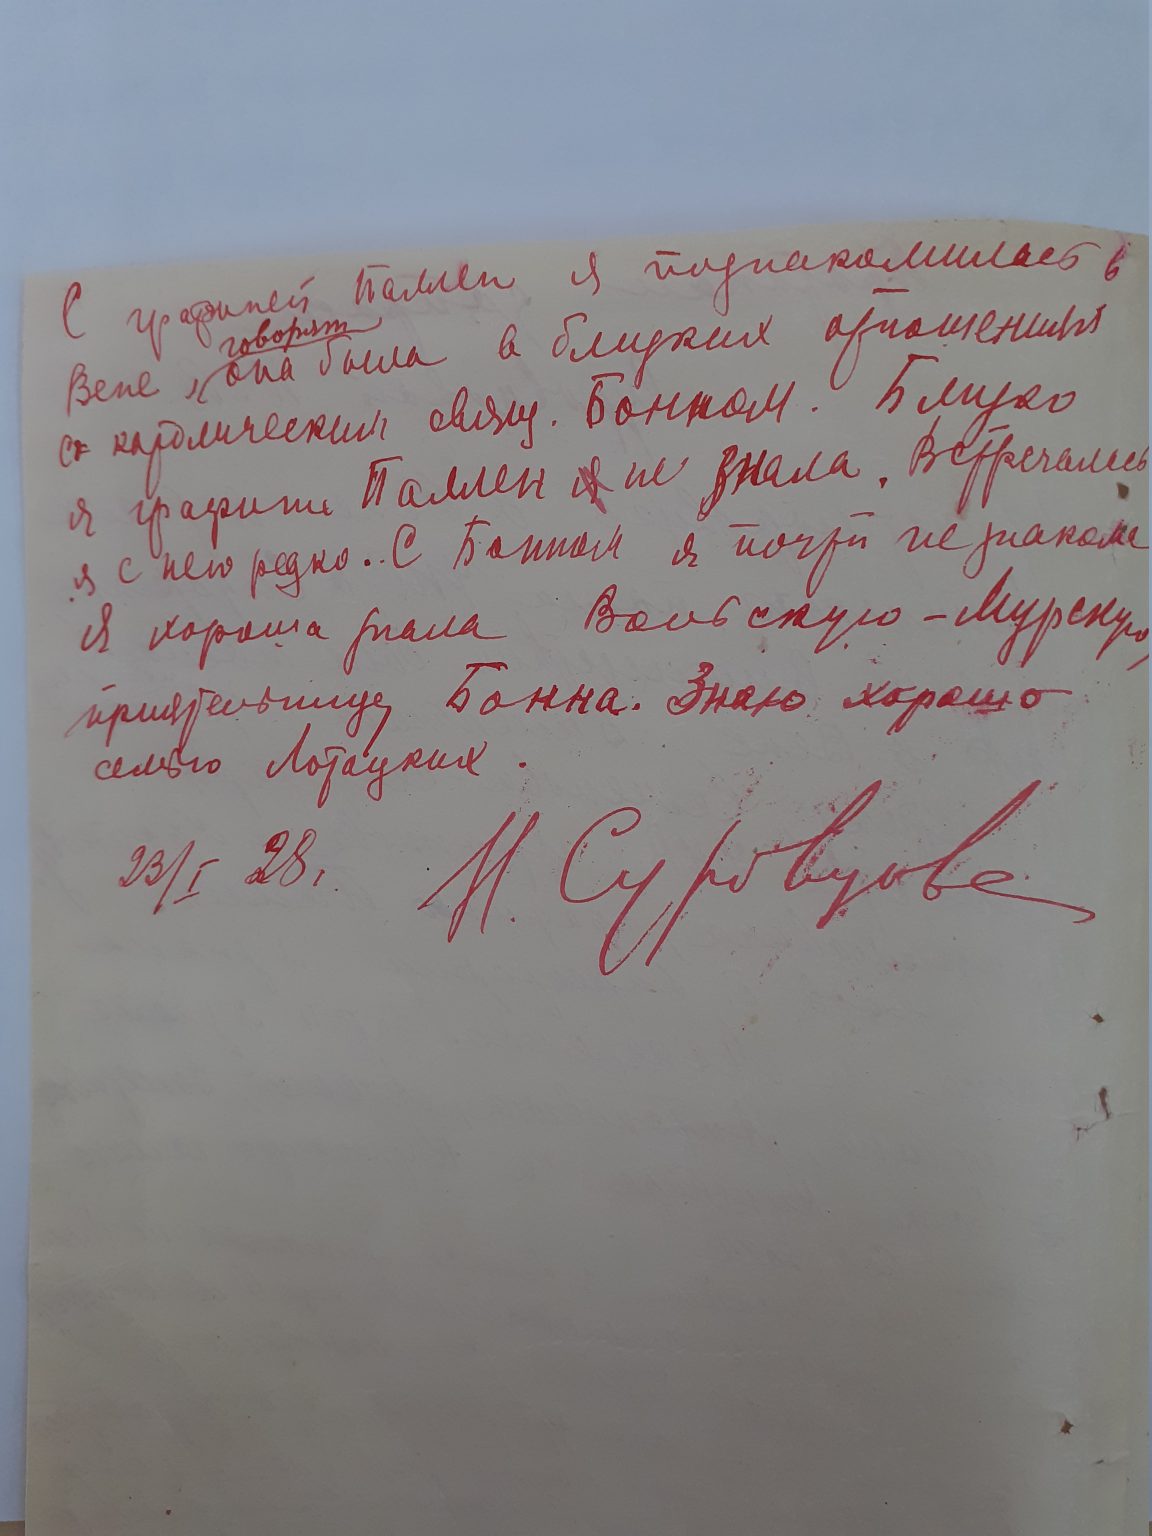 С графиней Пален я познакомилась в
Вене, говорят она была в близких отношениях
с католическим свящ. Бонном. Близко
я графини Пален я не знала. Встречалась
я с нею редко. С Бонном я почти не знакома
Я хорошо знала Вольскую-Мурскую,
приятельницу Бонна. Знаю хорошо
семью Лотацких.
23/I 28 г. Н. Суровцова